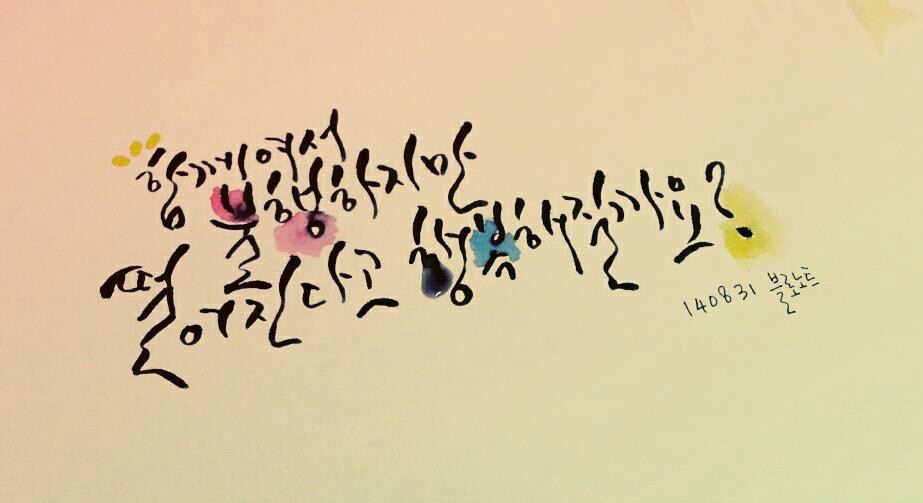 함께여서
불행하지만
멀어진다고 행복해질까요?
140831 블로노트